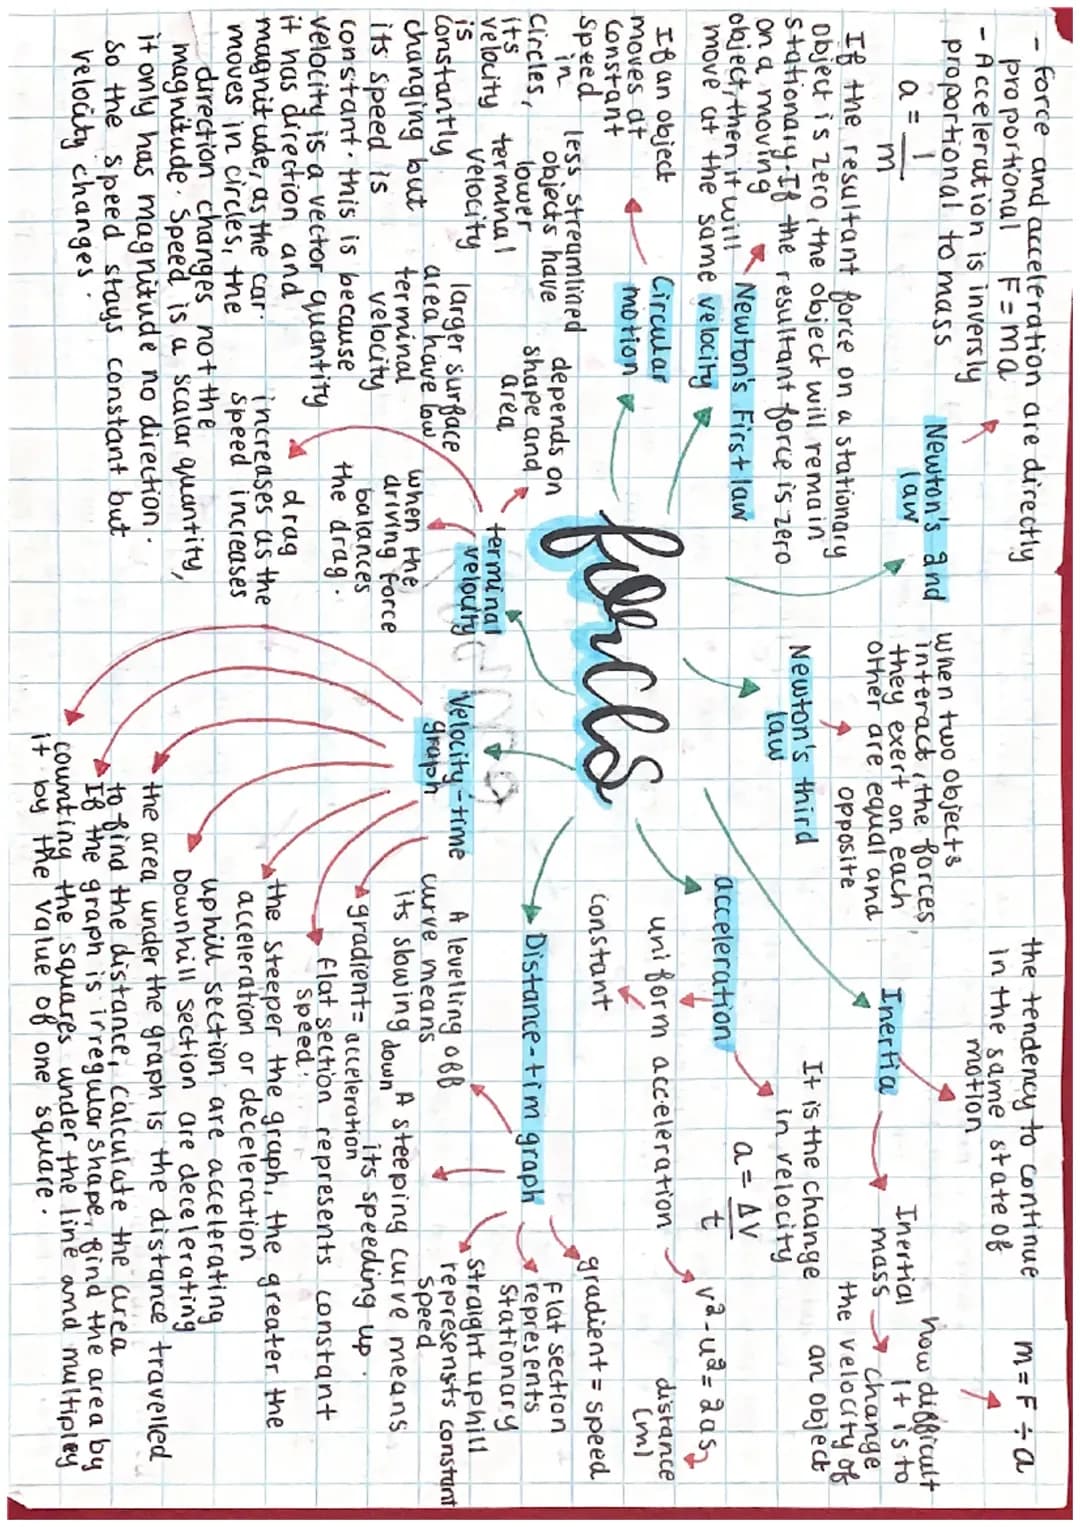 - Force and acceleration are directly
proportional F=ma
- Acceleration is inversly
proportional to mass
a = 1/m
Newton's 2nd
law
when two objects
interact, the forces
they exert on each
other are equal and
opposite
Newton's third
law
the tendency to continue
in the same state of
motion
Inertia
m = F ÷ a
Inertial
mass
how difficult
it is to
change
the velocity of
an object
If the resultant force on a stationary
object is zero, the object will remain
stationary. If the resultant force is zero
on a moving
object, then it will
move at the same velocity
Newton's First law
acceleration
It is the change
in velocity
a = ΔV/t
uniform acceleration
constant
v² - u² = 2as
distance
(m)
Circular
motion
If an object
moves at
constant
speed
in
circles,
its
velocity
is
constantly
changing but
its speed is
constant. this is because
velocity is a vector quantity
it has direction and
magnitude, as the car
moves in circles, the
direction changes not the
magnitude. Speed is a scalar quantity,
it only has magnitude no direction.
so the speed stays constant but
velocity changes.
forces
terminal
velocity
less streamlined
objects have
lower
terminal
velocity
depends on
shape and
area
larger surface
area have low
terminal
velocity
when the
driving force
balances
the drag.
drag
increases as the
speed increases
Distance-tim graph
gradient = speed
Flat section
represents
stationary
straight uphill
represensts constant
speed
A steeping curve means
its speeding up.
A levelling off
curve means
its slowing down
Velocity-time
graph
gradient = acceleration
flat section represents constant
speed.
the steeper the graph, the greater the
acceleration or deceleration
uphill section are accelerating
Downhill section are decelerating
the area under the graph is the distance travelled
to find the distance, calculate the area
If the graph is irregular shape, find the area by
counting the squares under the line and multipley
it by the value of one square.